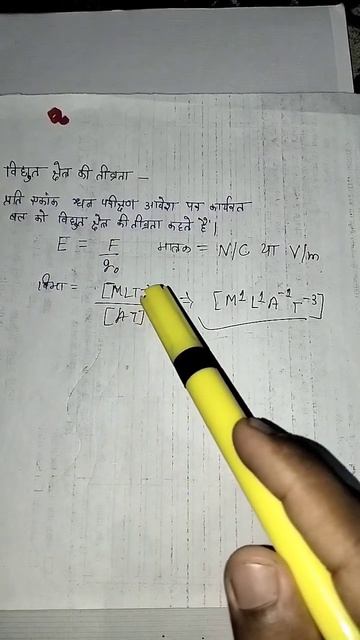 विद्युत क्षेत्र की तीव्रता —
प्रति एकांक धन परीक्षण आवेश पर कार्यरत
बल को विद्युत क्षेत्र की तीव्रता कहते हैं|
E = F/q₀ मात्रक = N/C या V/m
विमा = [MLT /[AT] ⇒ [M¹L¹A⁻¹T⁻³]